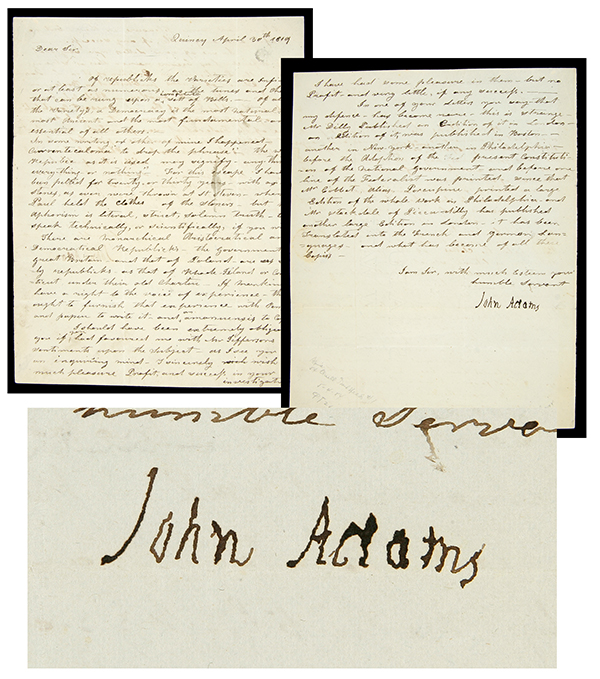 Quincy April 30th 1819
Dear Sir.
Of republicks the Varieties are infi
or at least as numerous as the tunes and cha
that can be rung upon a set of Bells. — Of a
the Varietys, a Democracy is the most natural
most ancient and the most fundamental and
essential of all others. —
In some writing or other of mine I happened
Currente calamo to drop the phrase "The w
Republic as it is used may signify any thi
everything or nothing" For this escape I have
been pelted for twenty or thirty years with as
Stones as ever were thrown at St Steven when
Paul held the clothes of the Stoners but
Aphorism is literal, strict, solemn truth — to
speak technically, or scientifically, if you w
There are Monarchical Aristocratical an
Democratical Republicks — the Government
great Britain and that of Poland are as s
ly republicks as that of Rhode Island or Con
ticut under their old Charters — If mankind
have a right to the voice of experience — the
ought to furnish that experience with Pen
and paper to write it — and, amanuensis to Co
I should have been extremely obliged
you if had favoured me with Mr Jeffersons
Sentiments upon the Subject — as I see you
an inquiring mind I sincerely wish
much pleasure Profit, and success in your
investigati
I have had some pleasure in them — but no
Profit — and very little, if any success. —
In one of your letters you say that
my defence has become rare — this is strange —
Mr Dilly Published an Edition of it in Lon
an Edition of it, was published in Boston. —
another New York another in Philadelphia —
before the Adoption of the present Constituti-
on of the National Government and before one
line of the Federalist was printed, since that
Mr Cobbet Alias, Porcupine printed a large
Edition of the whole work in Philadelphia and
Mr Stockdale of Piccadilly has published
another large Edition in London — it has been
Translated into the French and German Lan-
guages — and what has become of all these
Copies —
I am Sir, with much esteem your
humble Servant
John Adams
humble Serva
John Adams